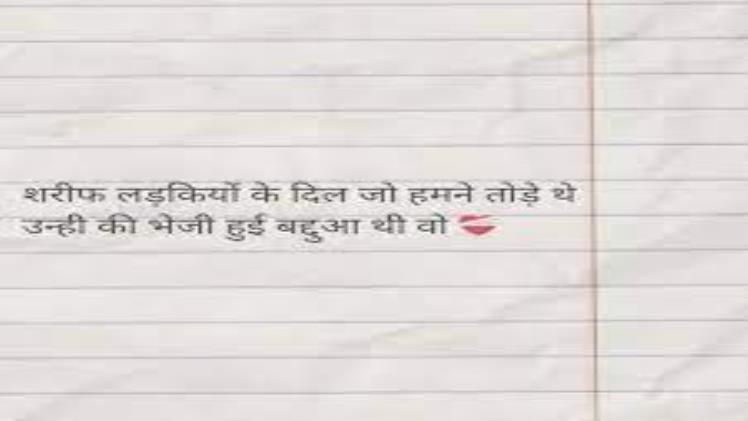 शरीफ लड़कियों के दिल जो हमने तोड़े थे
उन्ही की भेजी हुई बद्दुआ थी वो ❤